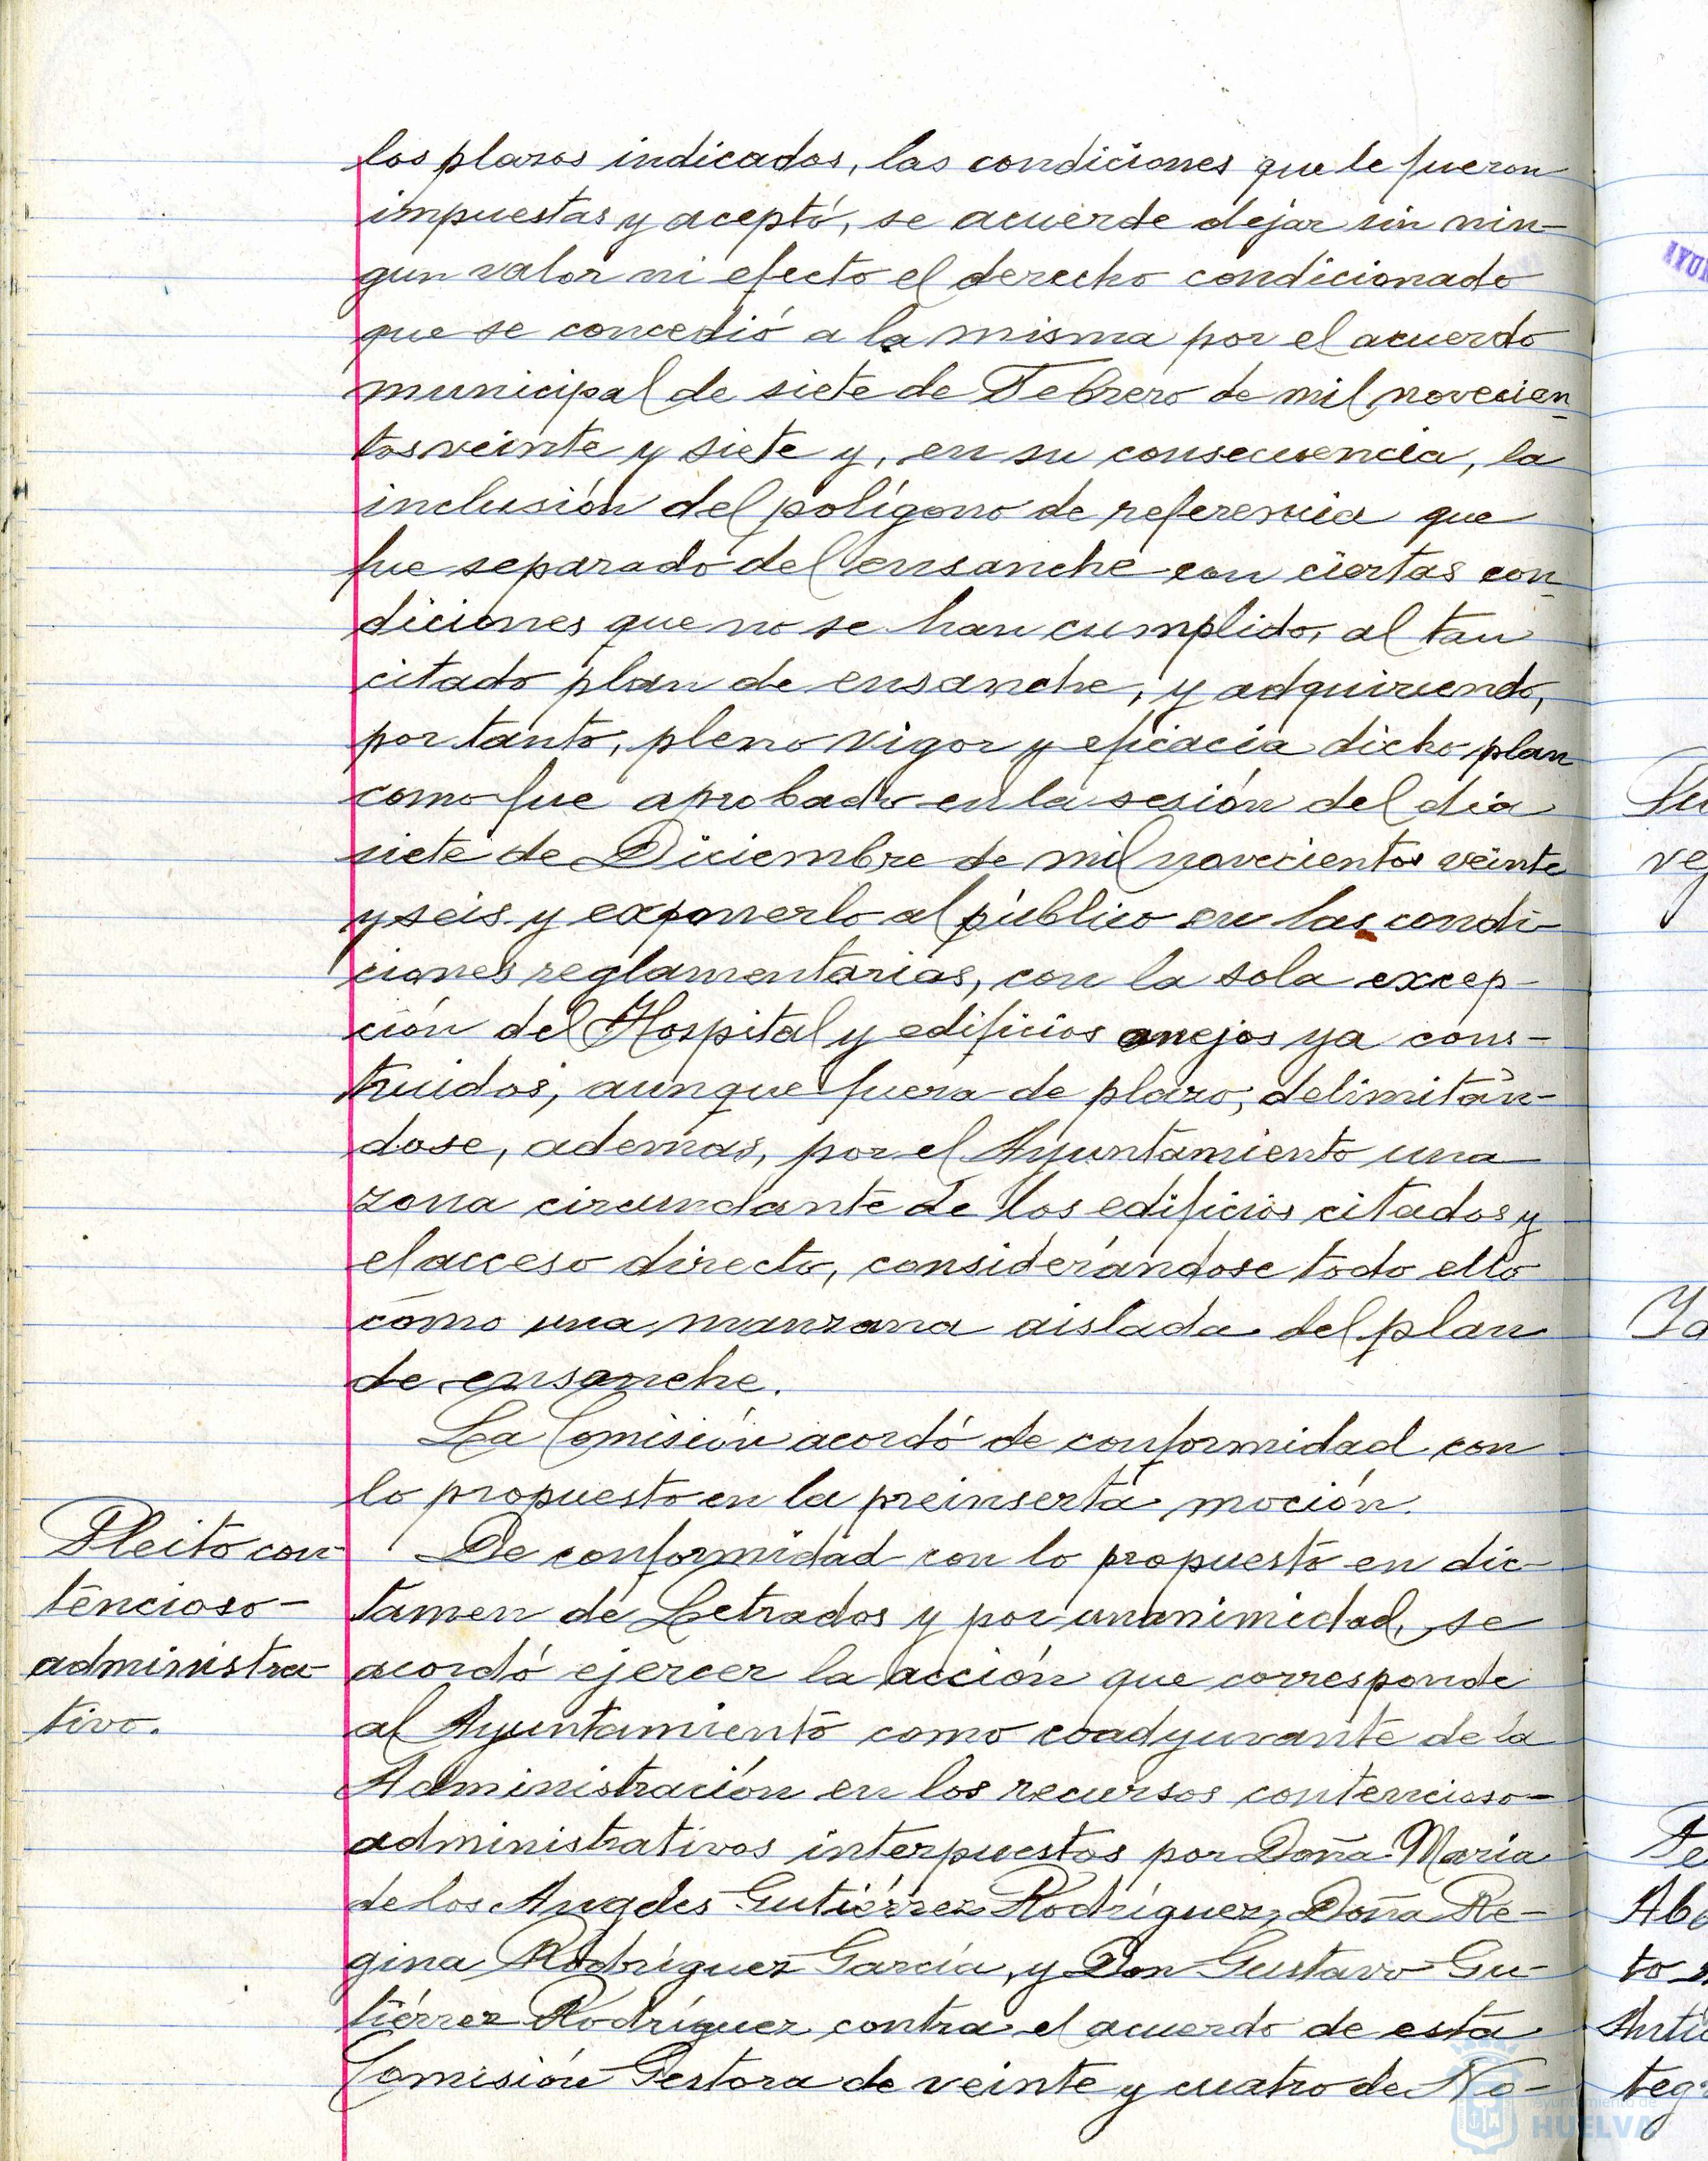 los plazos indicados, las condiciones que le fueron
impuestas y aceptó, se acuerde dejar sin nin-
gun valor ni efecto el derecho condicionado
que se concedió a la misma por el acuerdo
municipal de siete de Febrero de mil novecien-
tos veinte y siete y, en su consecuencia, la
inclusión del polígono de referencia que
fue separado del ensanche con ciertas con-
diciones que no se han cumplido, al tan
citado plan de ensanche, y adquiriendo,
por tanto, pleno vigor y eficacia dicho plan
como fue aprobado en la sesión del dia
siete de Diciembre de mil novecientos veinte
y seis y exponerlo al público en las condi-
ciones reglamentarias, con la sola excep-
ción del Hospital y edificios anejos ya cons-
truidos, aunque fuera de plazo, delimitán-
dose, además, por el Ayuntamiento una
zona circundante de los edificios citados y
el acceso directo, considerándose todo ello
como una manzana aislada del plan
de ensanche.
La Comisión acordó de conformidad con
lo propuesto en la preinserta moción.
Pleito con
tencioso-
administra-
tivo.
De conformidad con lo propuesto en dic-
tamen de Letrados y por unanimidad, se
acordó ejercer la acción que corresponde
al Ayuntamiento como coadyuvante de la
Administración en los recursos contencioso-
administrativos interpuestos por Doña Maria
de los Angeles Gutiérrez Rodríguez, Doña Re-
gina Rodríguez García, y Don Gustavo Gu-
tiérrez Rodríguez contra el acuerdo de esta
Comisión Gestora de veinte y cuatro de No-
Ayuntamiento de
HUELVA